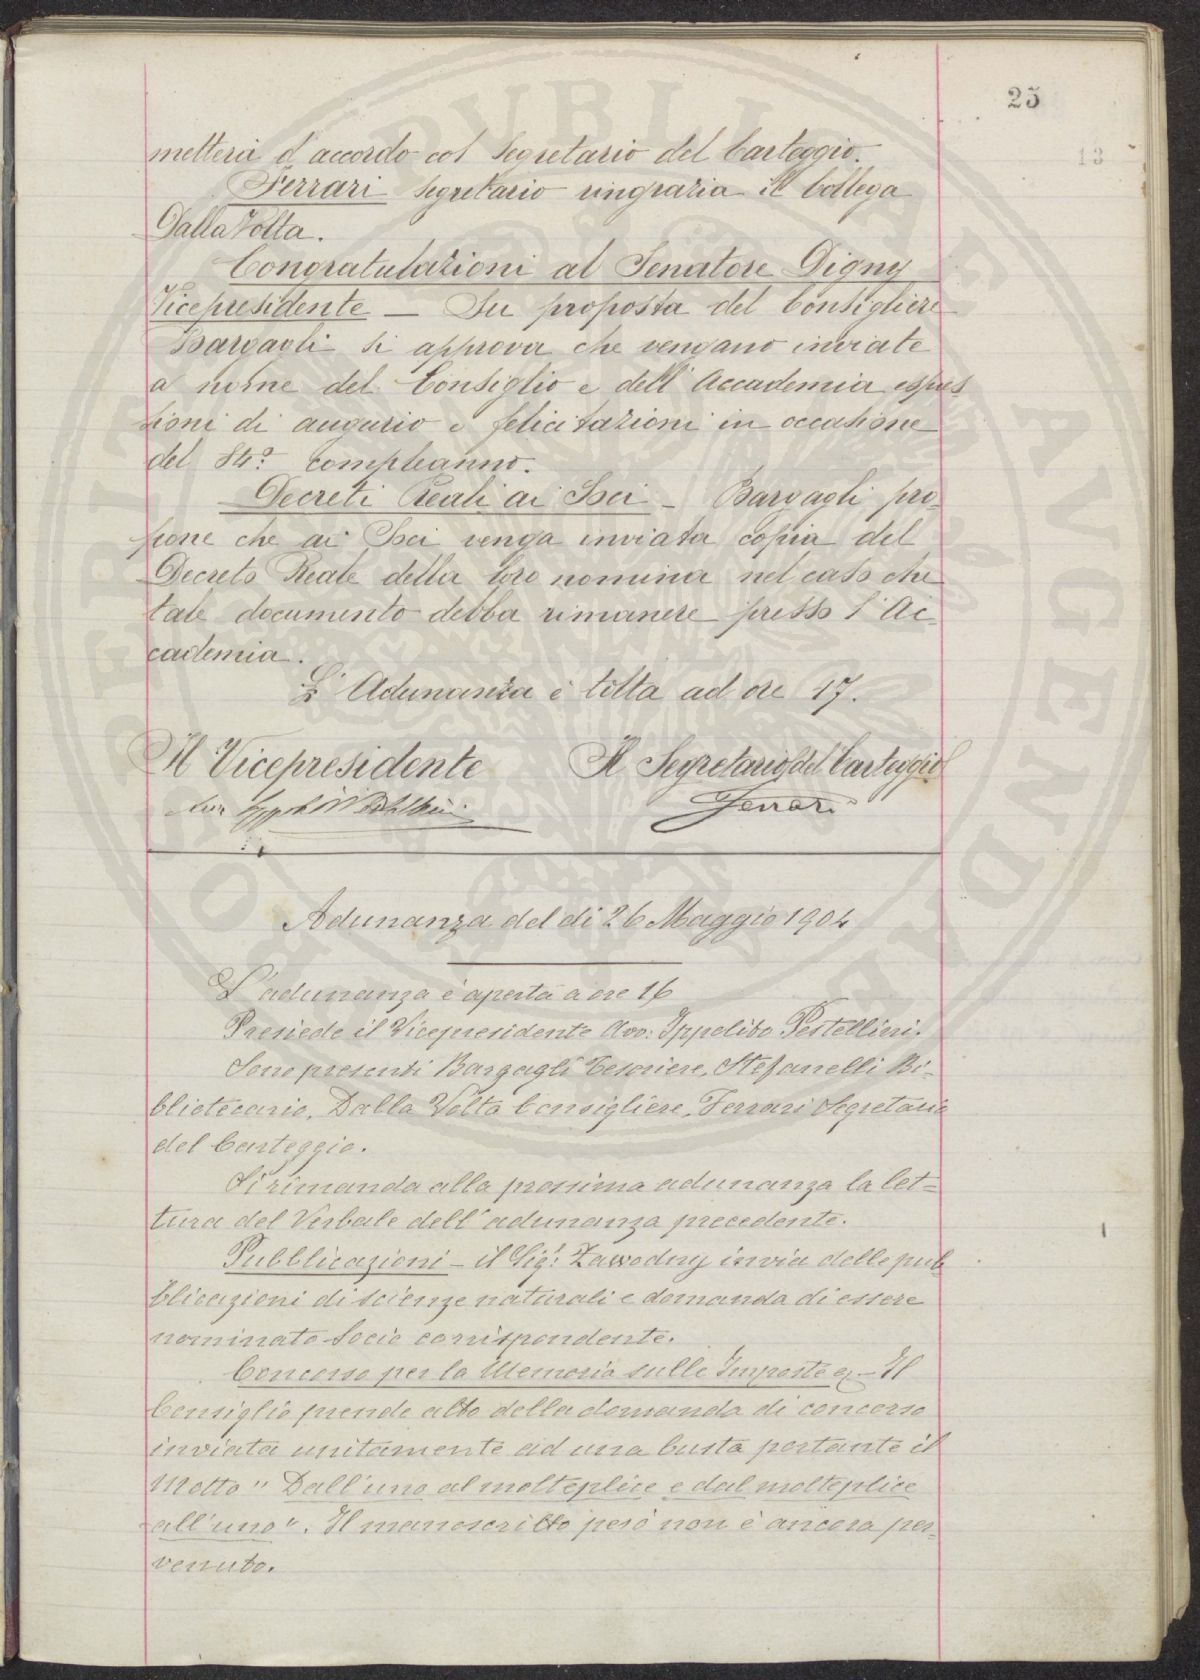 25
metterà d'accordo col Segretario del Carteggio.
Ferrari Segretario ringrazia il Collega
Dalla Volta.
Congratulazioni al Senatore Digny
Vicepresidente — Su proposta del Consigliere
Bargagli si approva che vengano inviate
a nome del Consiglio e dell'Accademia espres
sioni di augurio e felicitazioni in occasione
del 84.° compleanno.
Decreti Reali ai Soci — Bargagli pro-
pone che ai Soci venga inviata copia del
Decreto Reale della loro nomina nel caso che
tale documento debba rimanere presso l'Ac-
cademia.
L'Adunanza è tolta ad ore 17.
Il Vicepresidente Il Segretario del Carteggio
Ferrari
Adunanza del dì 26 Maggio 1904
L'adunanza è aperta a ore 16
Presiede il Vicepresidente Avv: Ippolito Pestellini.
Sono presenti Bargagli Tesoriere, Stefanelli Bi-
bliotecario, Dalla Volta Consigliere, Ferrari Segretario
del Carteggio.
Si rimanda alla prossima adunanza la let-
tura del Verbale dell'adunanza precedente.
Pubblicazioni — il Sigr. Zawodny invia delle pub
blicazioni di scienze naturali e domanda di essere
nominato Socio corrispondente.
Concorso per la Memoria sulle Imposte — Il
Consiglio prende atto della domanda di concorso
inviata unitamente ad una busta portante il
Motto "Dall'uno al molteplice e dal molteplice
all'uno". Il manoscritto però non è ancora per-
venuto.